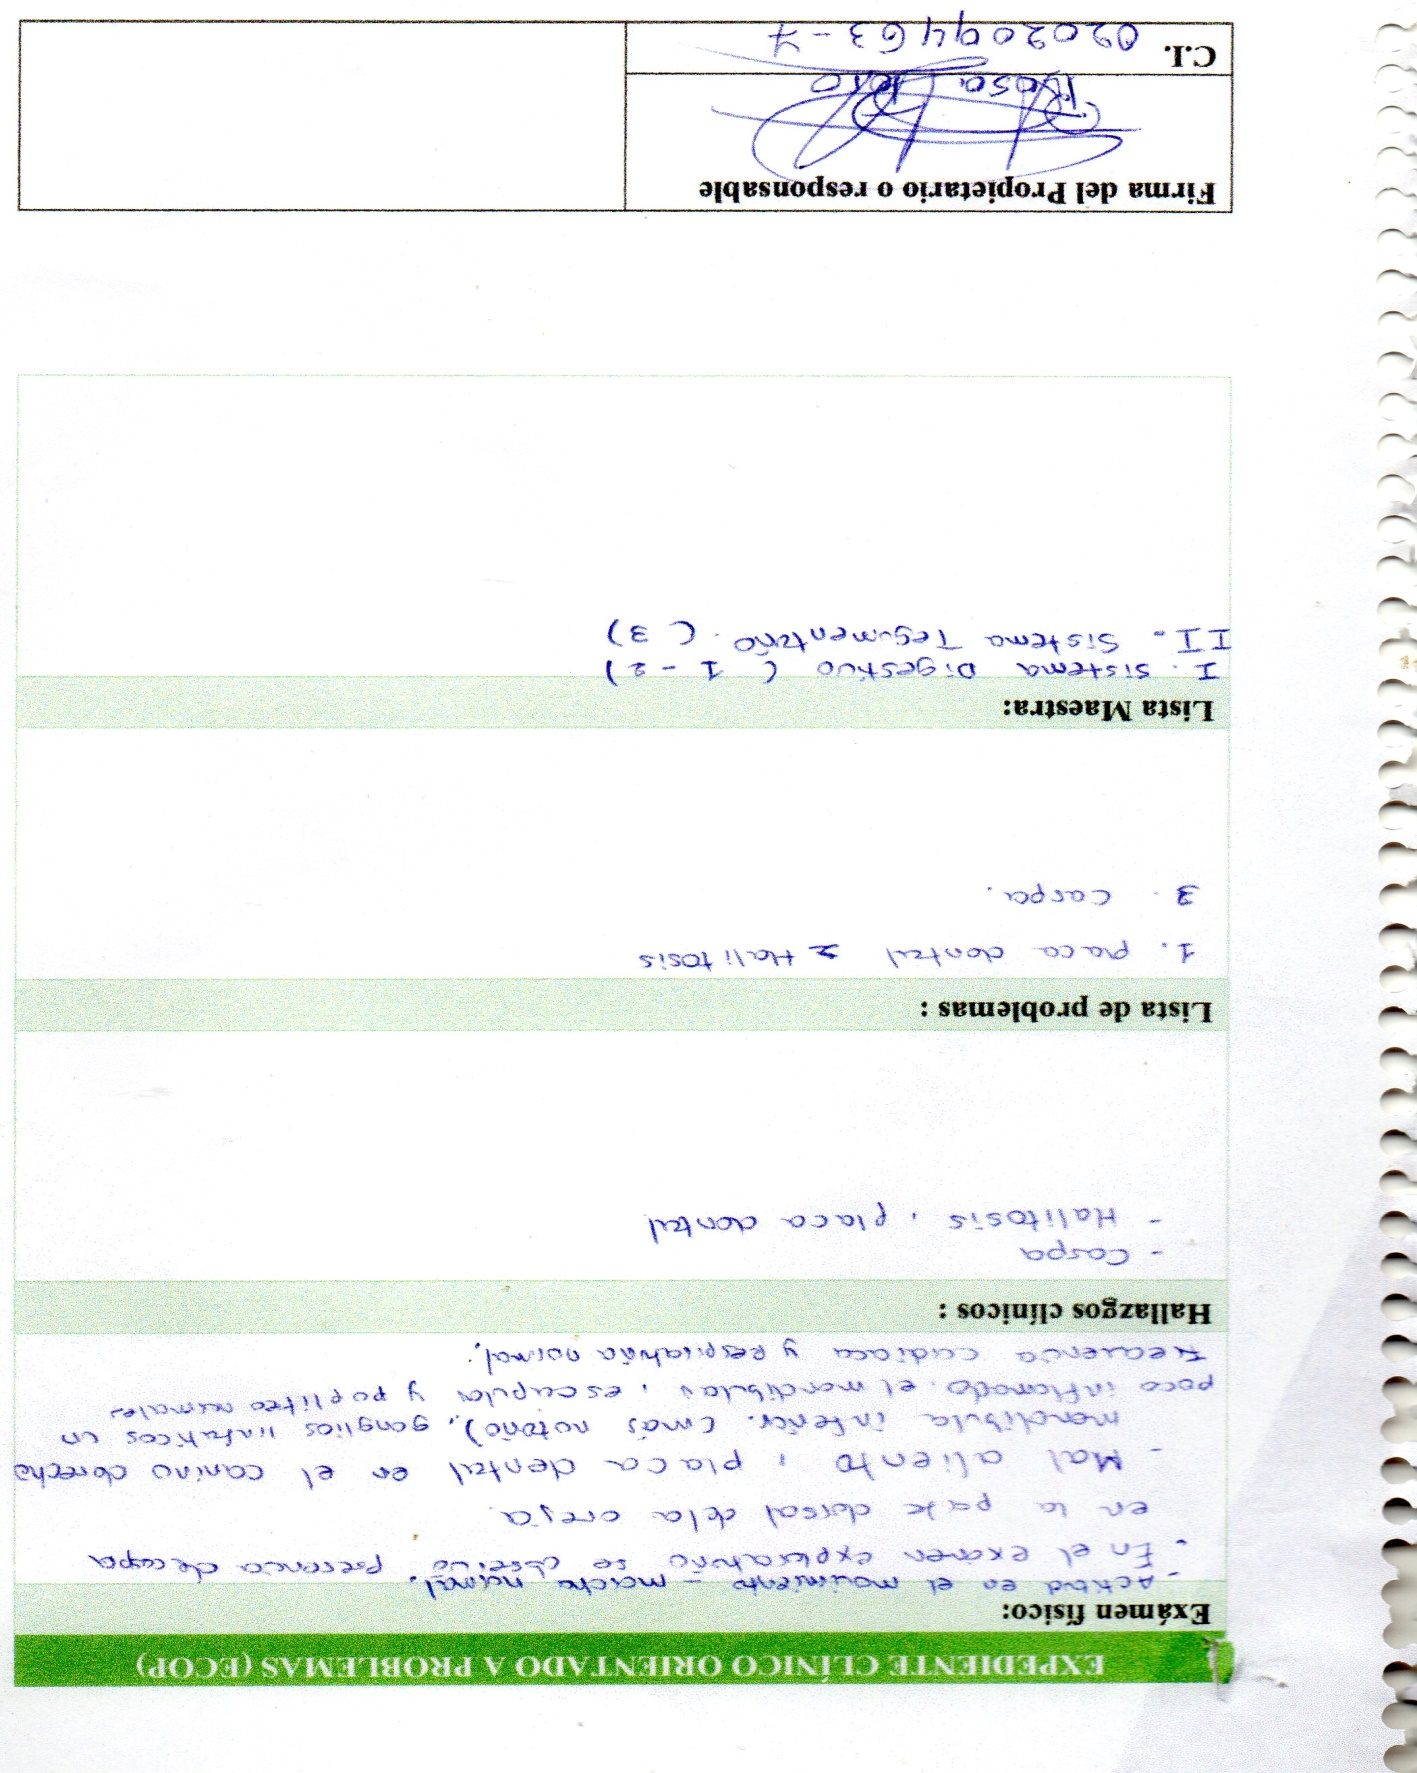 EXPEDIENTE CLÍNICO ORIENTADO A PROBLEMAS (ECOP)
Exámen físico:
- Actitud en el movimiento - marcha normal.
- En el exámen exploratorio se observó presencia de caspa
en la parte dorsal de la oreja
- Mal aliento, placa dental en el canino derecho
mandíbula inferior. (más notorio), ganglios linfaticos un
poco inflamado. el mandibular, escapular y popliteo normales
frecuencia cardiaca y respiratoria normal.
Hallazgos clínicos :
- Caspa
- Halitosis, placa dental
Lista de problemas :
1. placa dental 2 Halitosis
3. Caspa.
Lista Maestra:
I. Sistema Digestivo (1-2)
II. Sistema Tegumentario. (3)
Firma del Propietario o responsable
Rosa
C.I. 020209463-7